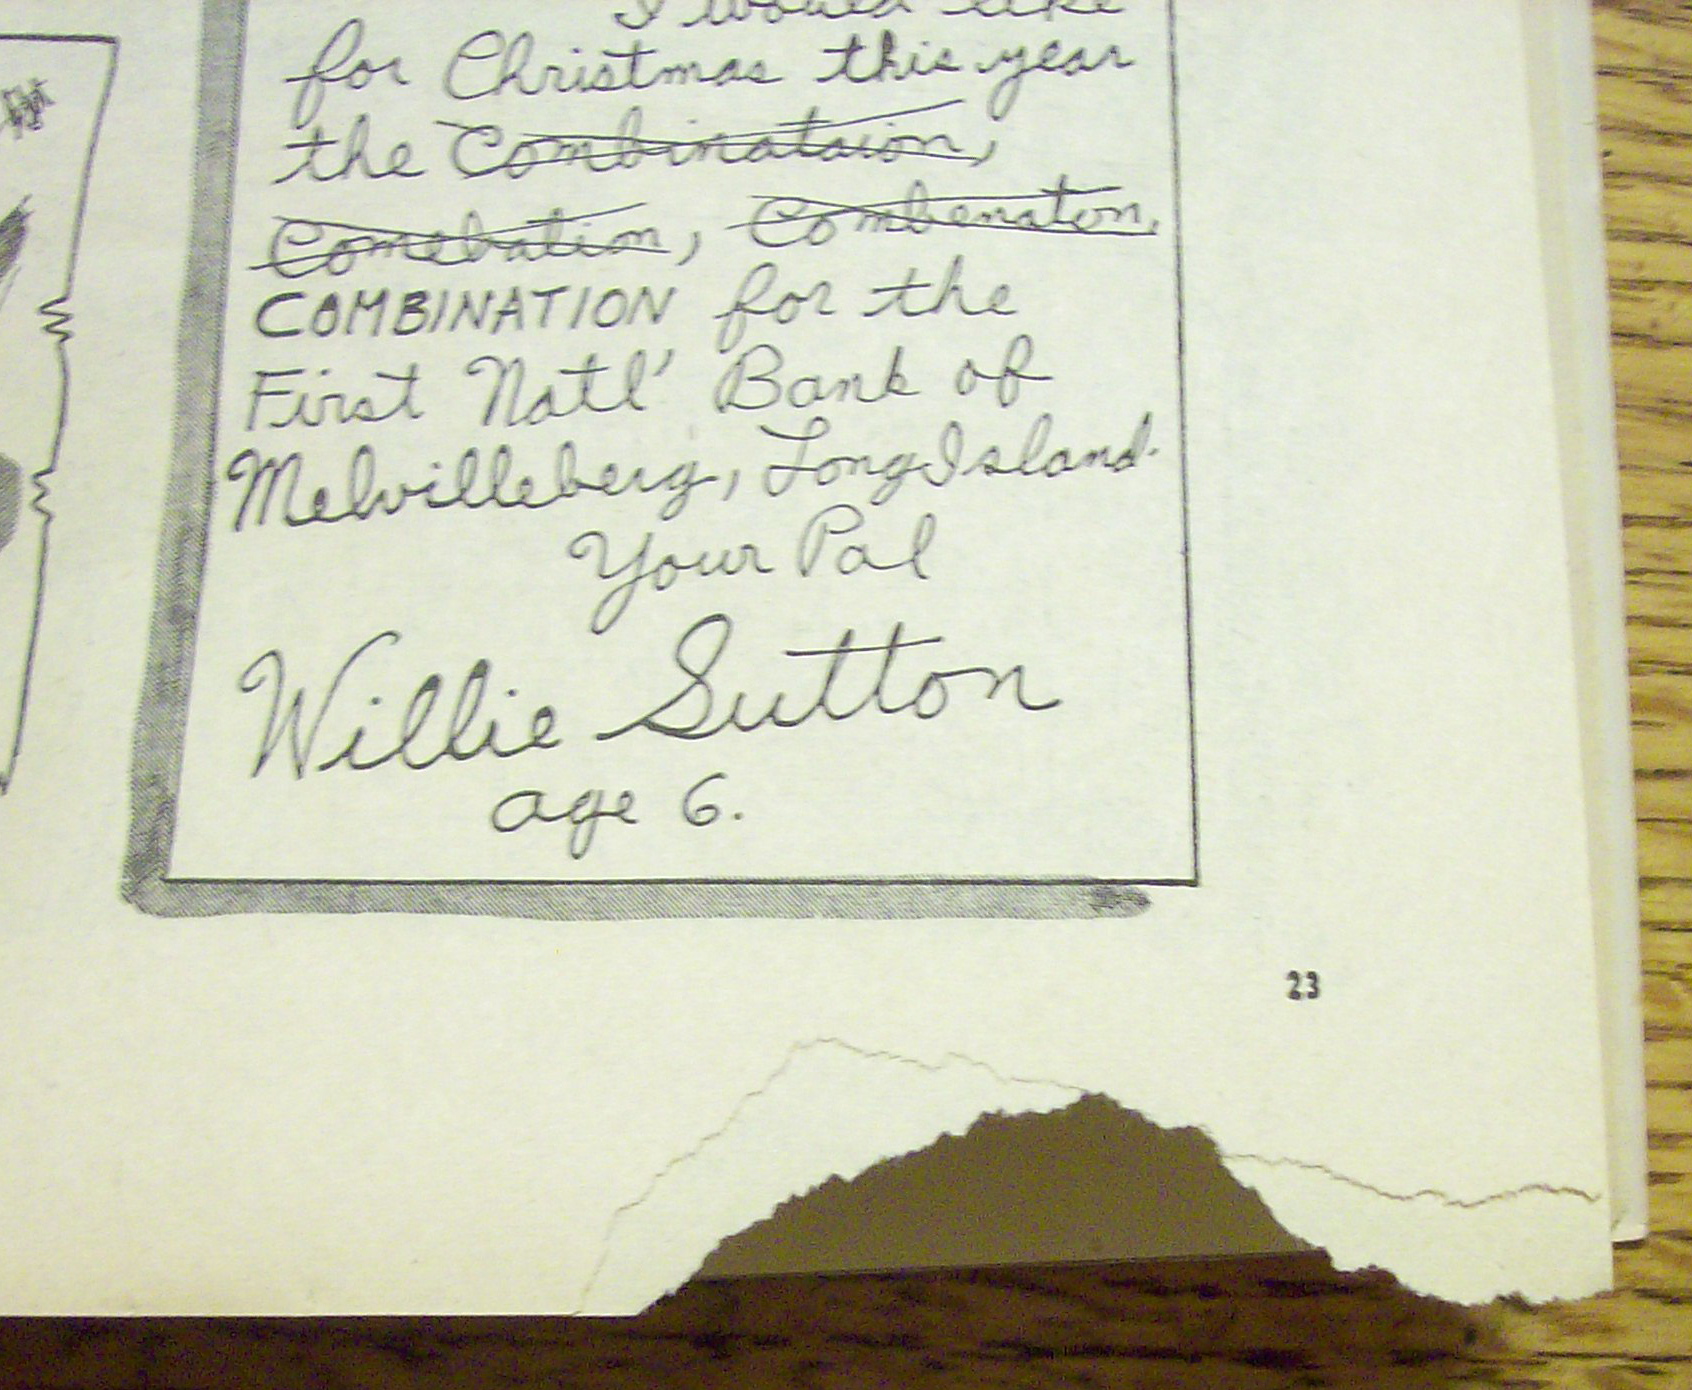 I would like
for Christmas this year
the Combinataion,
Comebation, Combenaton,
COMBINATION for the
First Natl' Bank of
Melvilleberg, Long Island.
Your Pal
Willie Sutton
age 6.
23